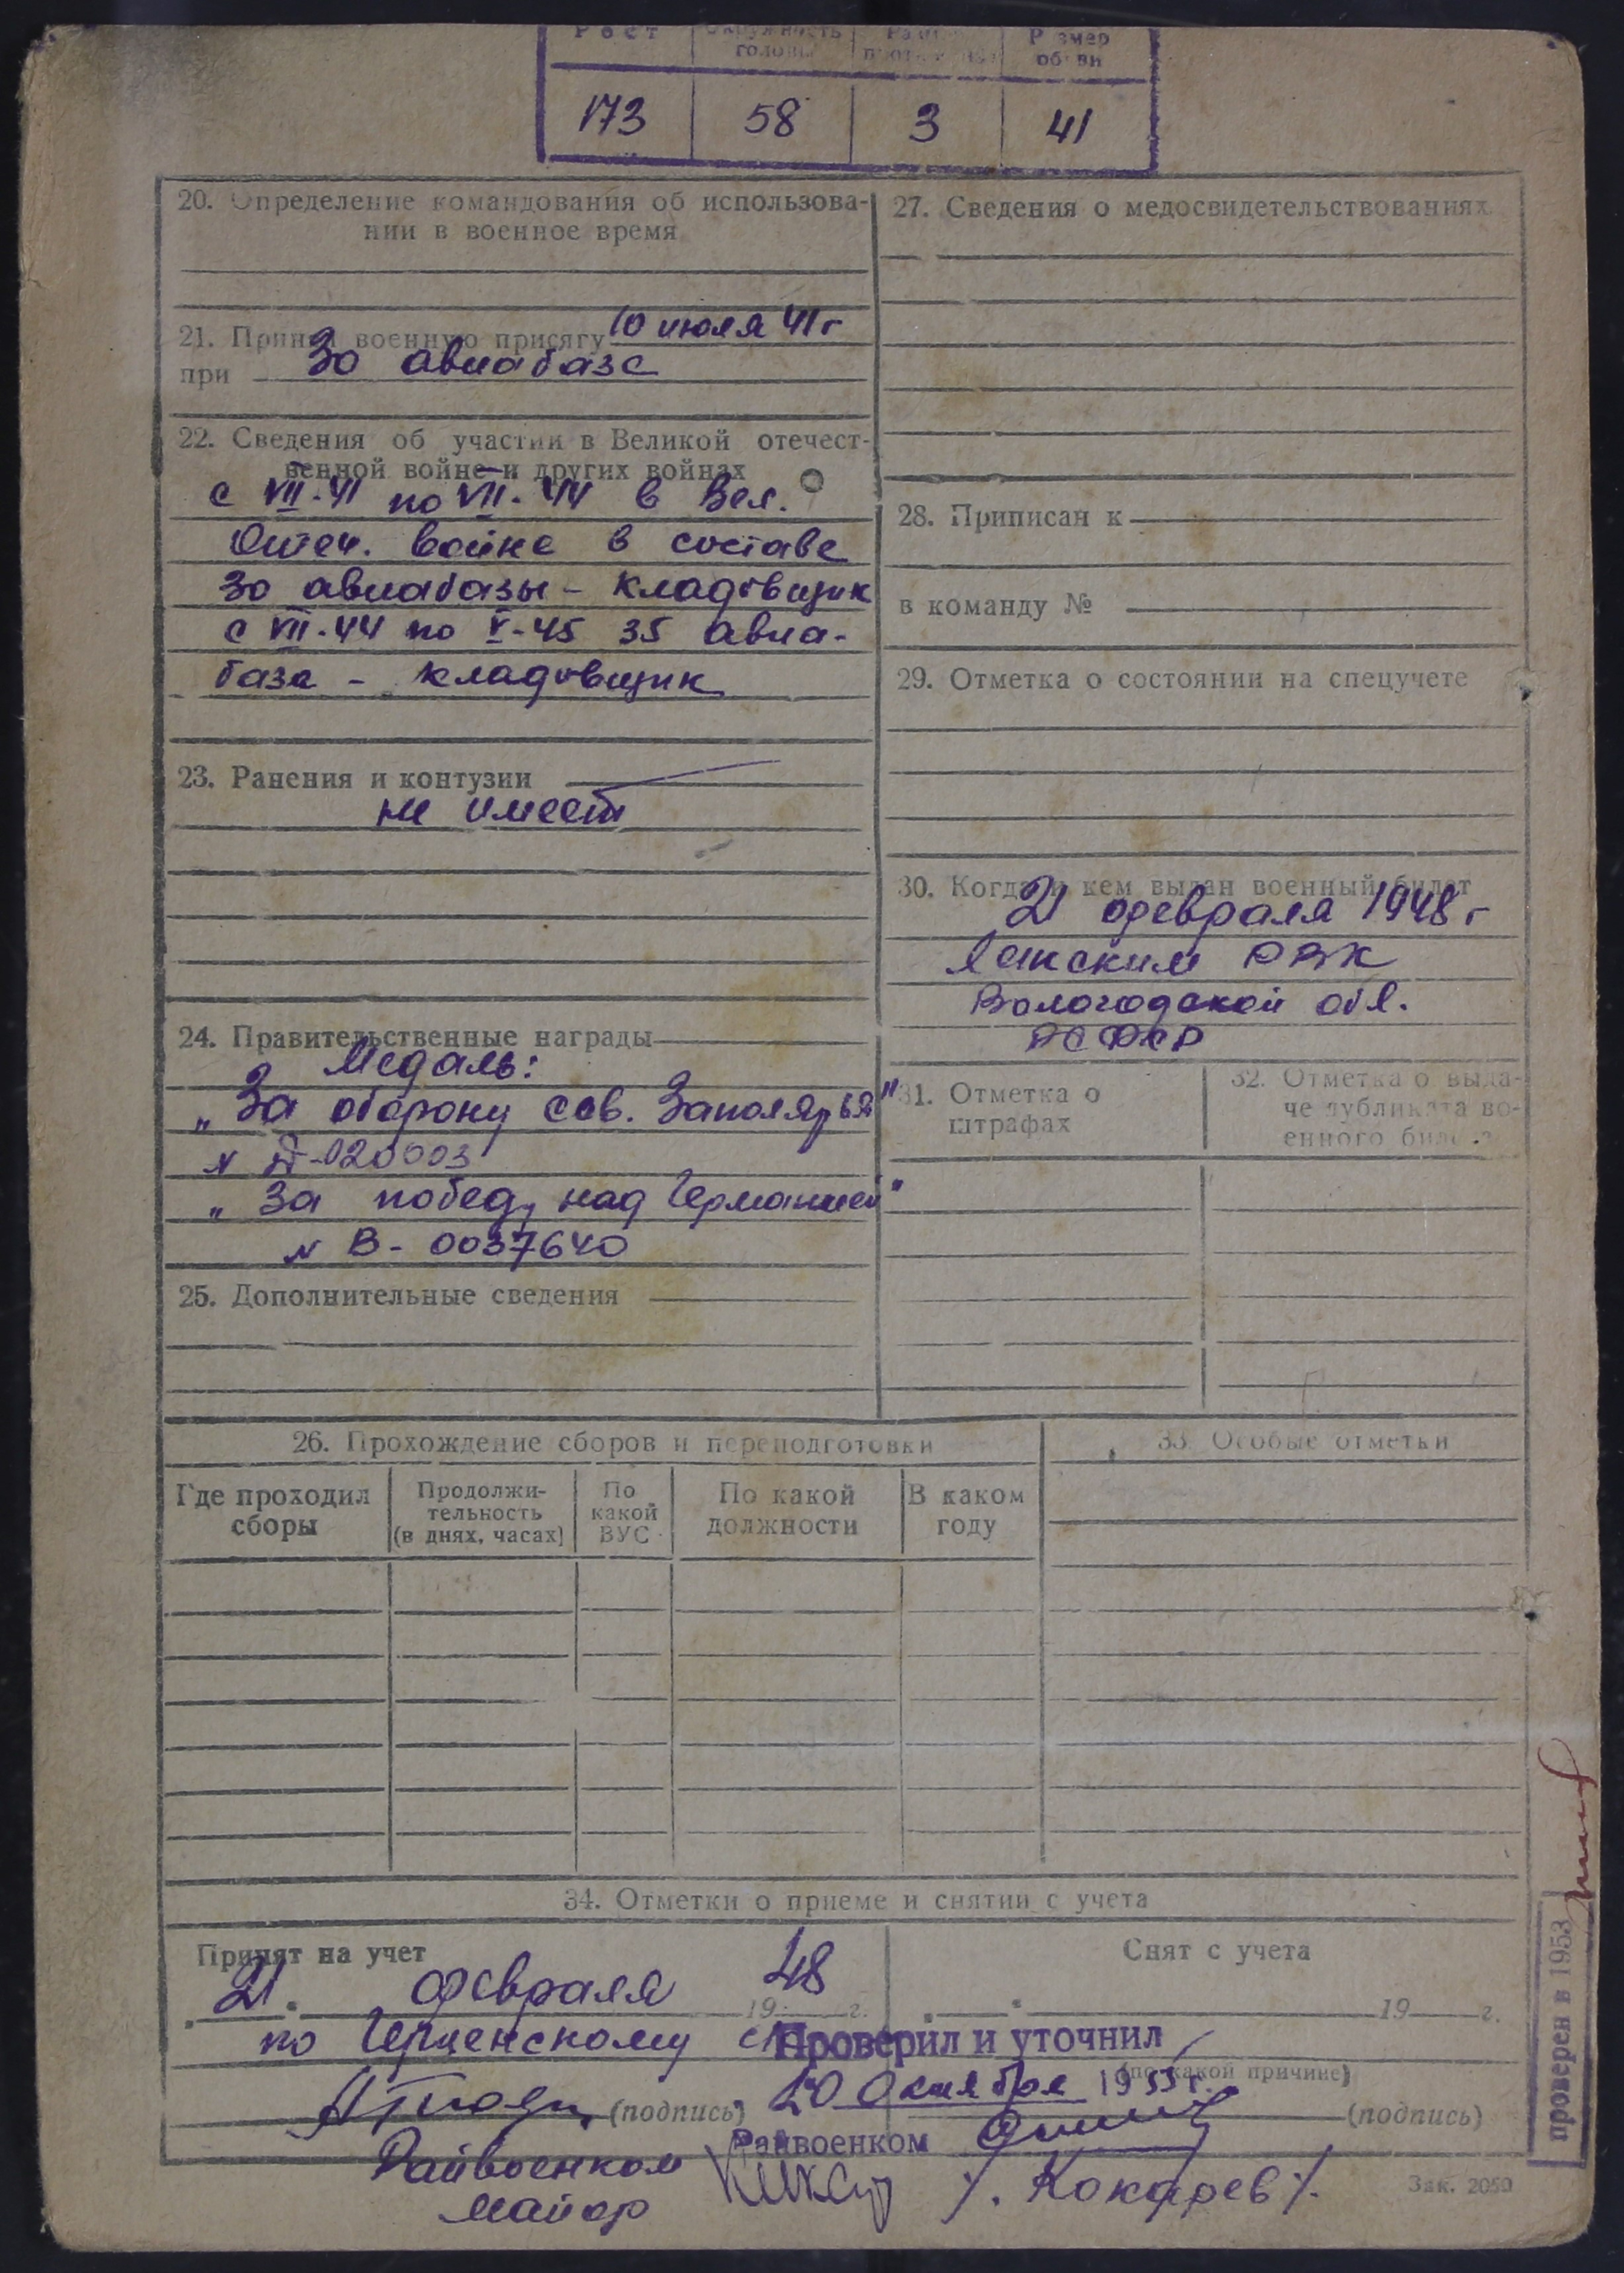 Рост Окружность головы Размер противогаза Размер обуви
173 58 3 41
20. Определение командования об использова-
нии в военное время
21. Принял военную присягу 10 июля 41 г
при 30 авиабазе
22. Сведения об участии в Великой отечест-
венной войне и других войнах
с VII-41 по VII-44 в Вел.
Отеч. войне в составе
30 авиабазы - кладовщик
с VII-44 по V-45 35 авиа-
база - кладовщик
23. Ранения и контузии
не имеет
24. Правительственные награды
Медаль:
„За оборону Сов. Заполярья"
№ -020003
„За победу над Германией"
№ В-0037640
25. Дополнительные сведения
27. Сведения о медосвидетельствованиях
28. Приписан к
в команду №
29. Отметка о состоянии на спецучете
30. Когда и кем выдан военный билет
21 февраля 1948 г
РВК
Вологодской обл.
РСФСР
31. Отметка о
штрафах
32. Отметка о выда-
че дубликата во-
енного билета
26. Прохождение сборов и переподготовки
Где проходил
сборы
Продолжи-
тельность
(в днях, часах)
По
какой
ВУС
По какой
должности
В каком
году
33. Особые отметки
34. Отметки о приеме и снятии с учета
Принят на учет
21. февраля 1948 г.
по
(подпись)
Райвоенком
майор
Снят с учета
19 г.
(по какой причине)
(подпись)
Проверил и уточнил
20 октября 1955 г.
Райвоенком
/. Кокарев /.
проверен в 1953
Зак. 2050